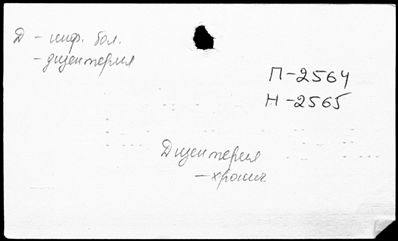 Д - инф. бол.
- дизентерия
П-2564
Н-2565
Дизентерия
- хронич